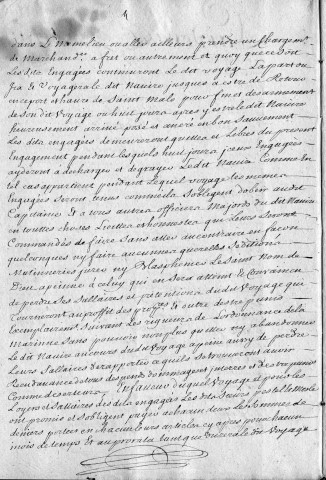 dans le mesme lieu ou aller ailleurs prendre un chargemt
de marchandes a fret ou autrement et quoy que ce soit
Lesdits Engagés continueront le dit voyage La part ou
Ira Le voyage ra le dit Navire jusques a estre de Retour
en ce port et havre de Saint Malo pour finir desarmement
de son dit voyage ou huit jours apres y estre le dit Navire
heureusement arrivé posé et amaré en bon Sauvement
Les dits engagés demeureront quittes et Libres du present
Engagement pendant lesquels huit jours jceux Engagés
ayderont a decharger et degrayer Led it Navire Comme en
tel cas appartient pendant Lequel voyage les mesmes
Engagés Seront tenus comme ils Sobligent dobeir audit
Capitaine Et a tous autres officiers Majors du dit Navire
en touttes choses Licittes et honnestes qui Leurs Seront
Commandés de faire Sans aller au contraire en facon
quelconques ny faire aucunnes querelles Seditions
Mutinneries jurer ny Blasphemer Le Saint Nom de
Dieu apeinne a celuy qui en Sera atteint Et Convaincu
de perdre Ses Sallaires et pretentions dudt Voyage qui
Tourneront au proffit des Et outre destre punis
Exemplairemt Suivant Les rigueurs de Lordonnance de la
Marinne Sans pouvoir non plus quitter ny abandonner
Le dit Navire au cours dudt Voyage a peine aussy de perdre
Leurs Sallaires et de rapporter ce quils Se trouveront avoir
Receu davance de tous despends dommages jnterets et destre punis
Comme deserteurs En faveur duquel Voyage et pour les
Loyers et Sallaires des dits engagés Les dits Sieurs
ont promis et Sobligent payer a chacun deux Les Sommes de
deniers portés en chacun leurs articles cy apres pour chacun
mois de temps Et au prorata tant que durera le dit Voyage